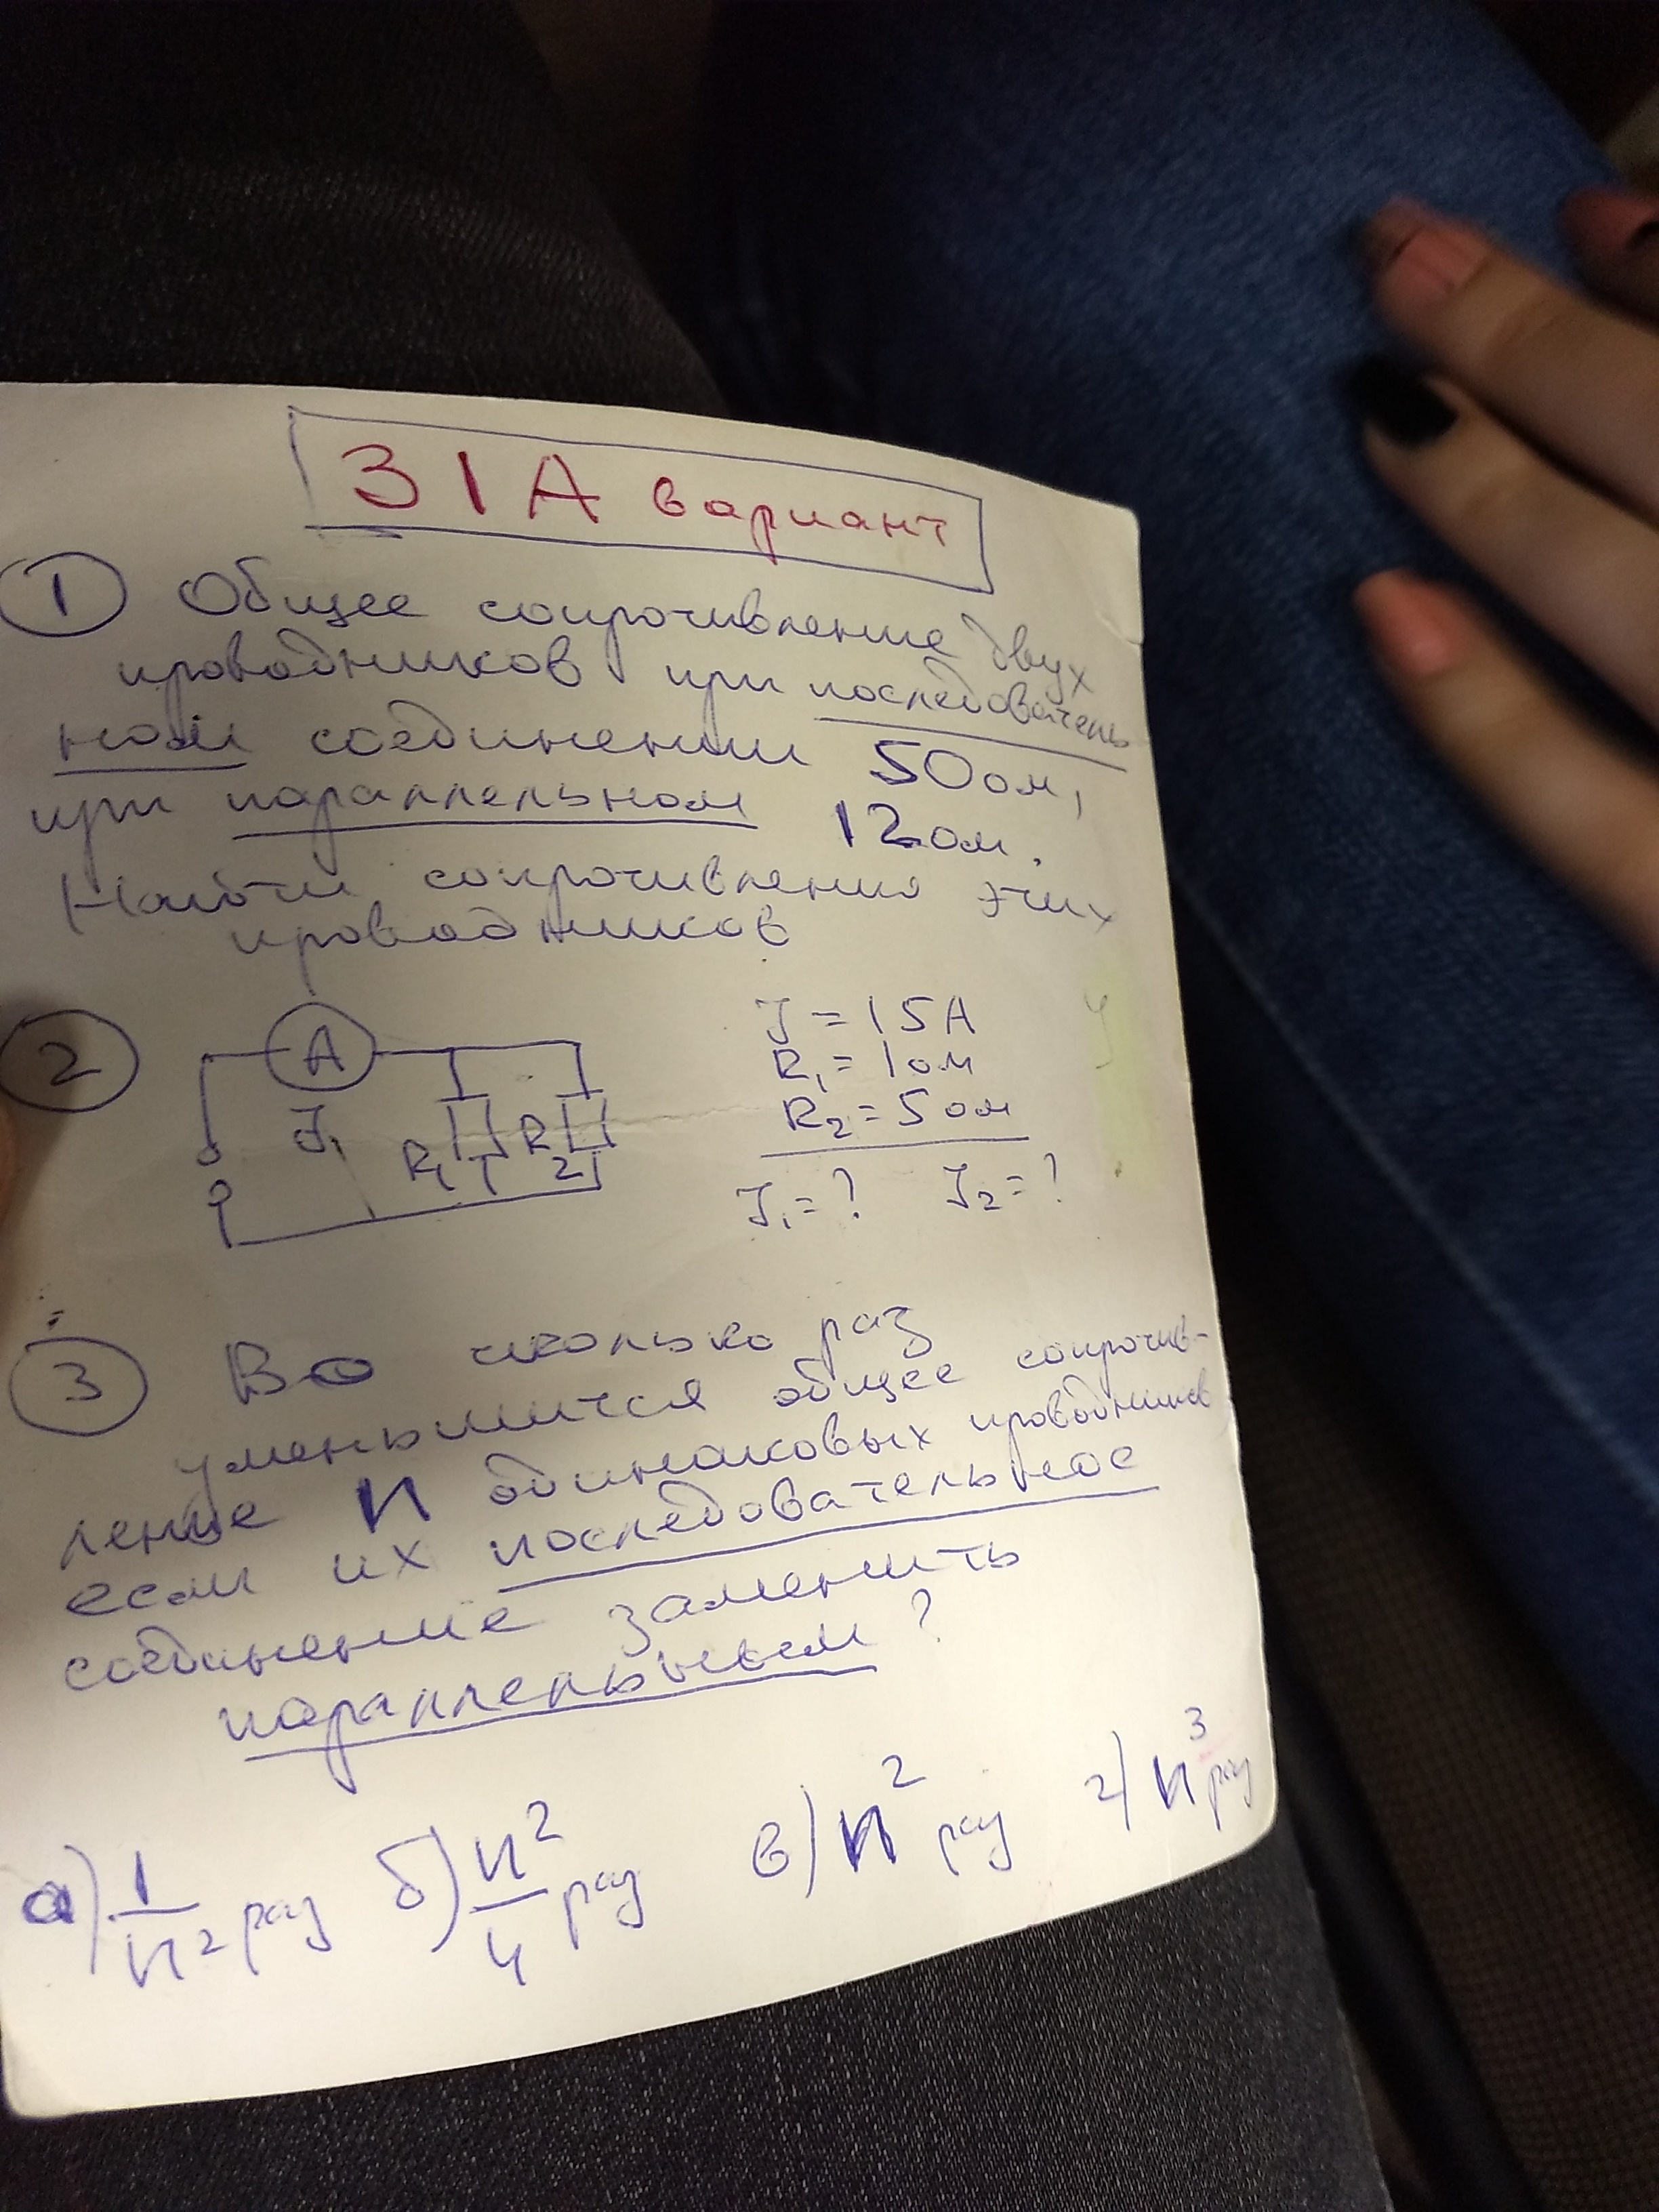 31А вариант
1 Общее сопротивление двух
проводников при последователь
ном соединении 50 ом,
при параллельном 12 ом.
Найти сопротивления этих
проводников
2 A J = 15 А
R₁ = 1 ом
J₁ R₁ R₂ R₂ = 5 ом
J₁ = ? J₂ = ?
3 Во сколько раз
уменьшится общее сопротив-
ление n одинаковых проводников
если их последовательное
соединение заменить
параллельным?
а) 1/n² раз б) n²/4 раз в) n² раз г) n³ раз